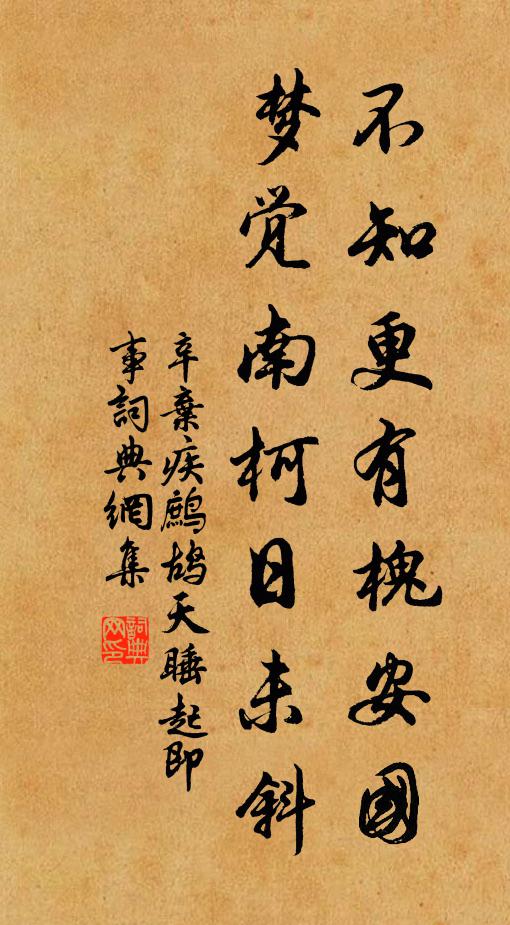 不知更有槐安國
梦觉南柯日未斜
辛棄疾鷓鴣天睡起即
事詞典網集
詞典
网印